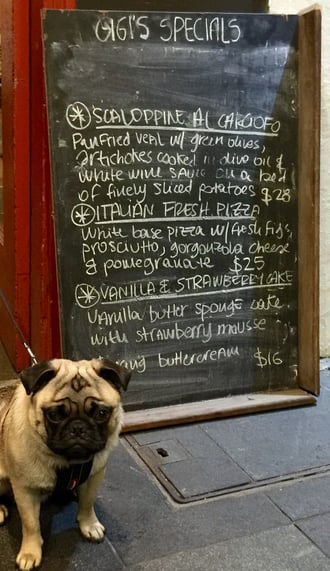 GIGI'S SPECIALS
SCALOPPINE AL CARCIOFO
Panfried veal w/ green olives,
artichokes cooked in olive oil &
white wine sauce on a bed
of finely sliced potatoes $28
ITALIAN FRESH PIZZA
White base pizza w/ fresh figs,
prosciutto, gorgonzola cheese
& pomegranate $25
VANILLA & STRAWBERRY CAKE
Vanilla butter sponge cake
with strawberry mousse
buttercream $16